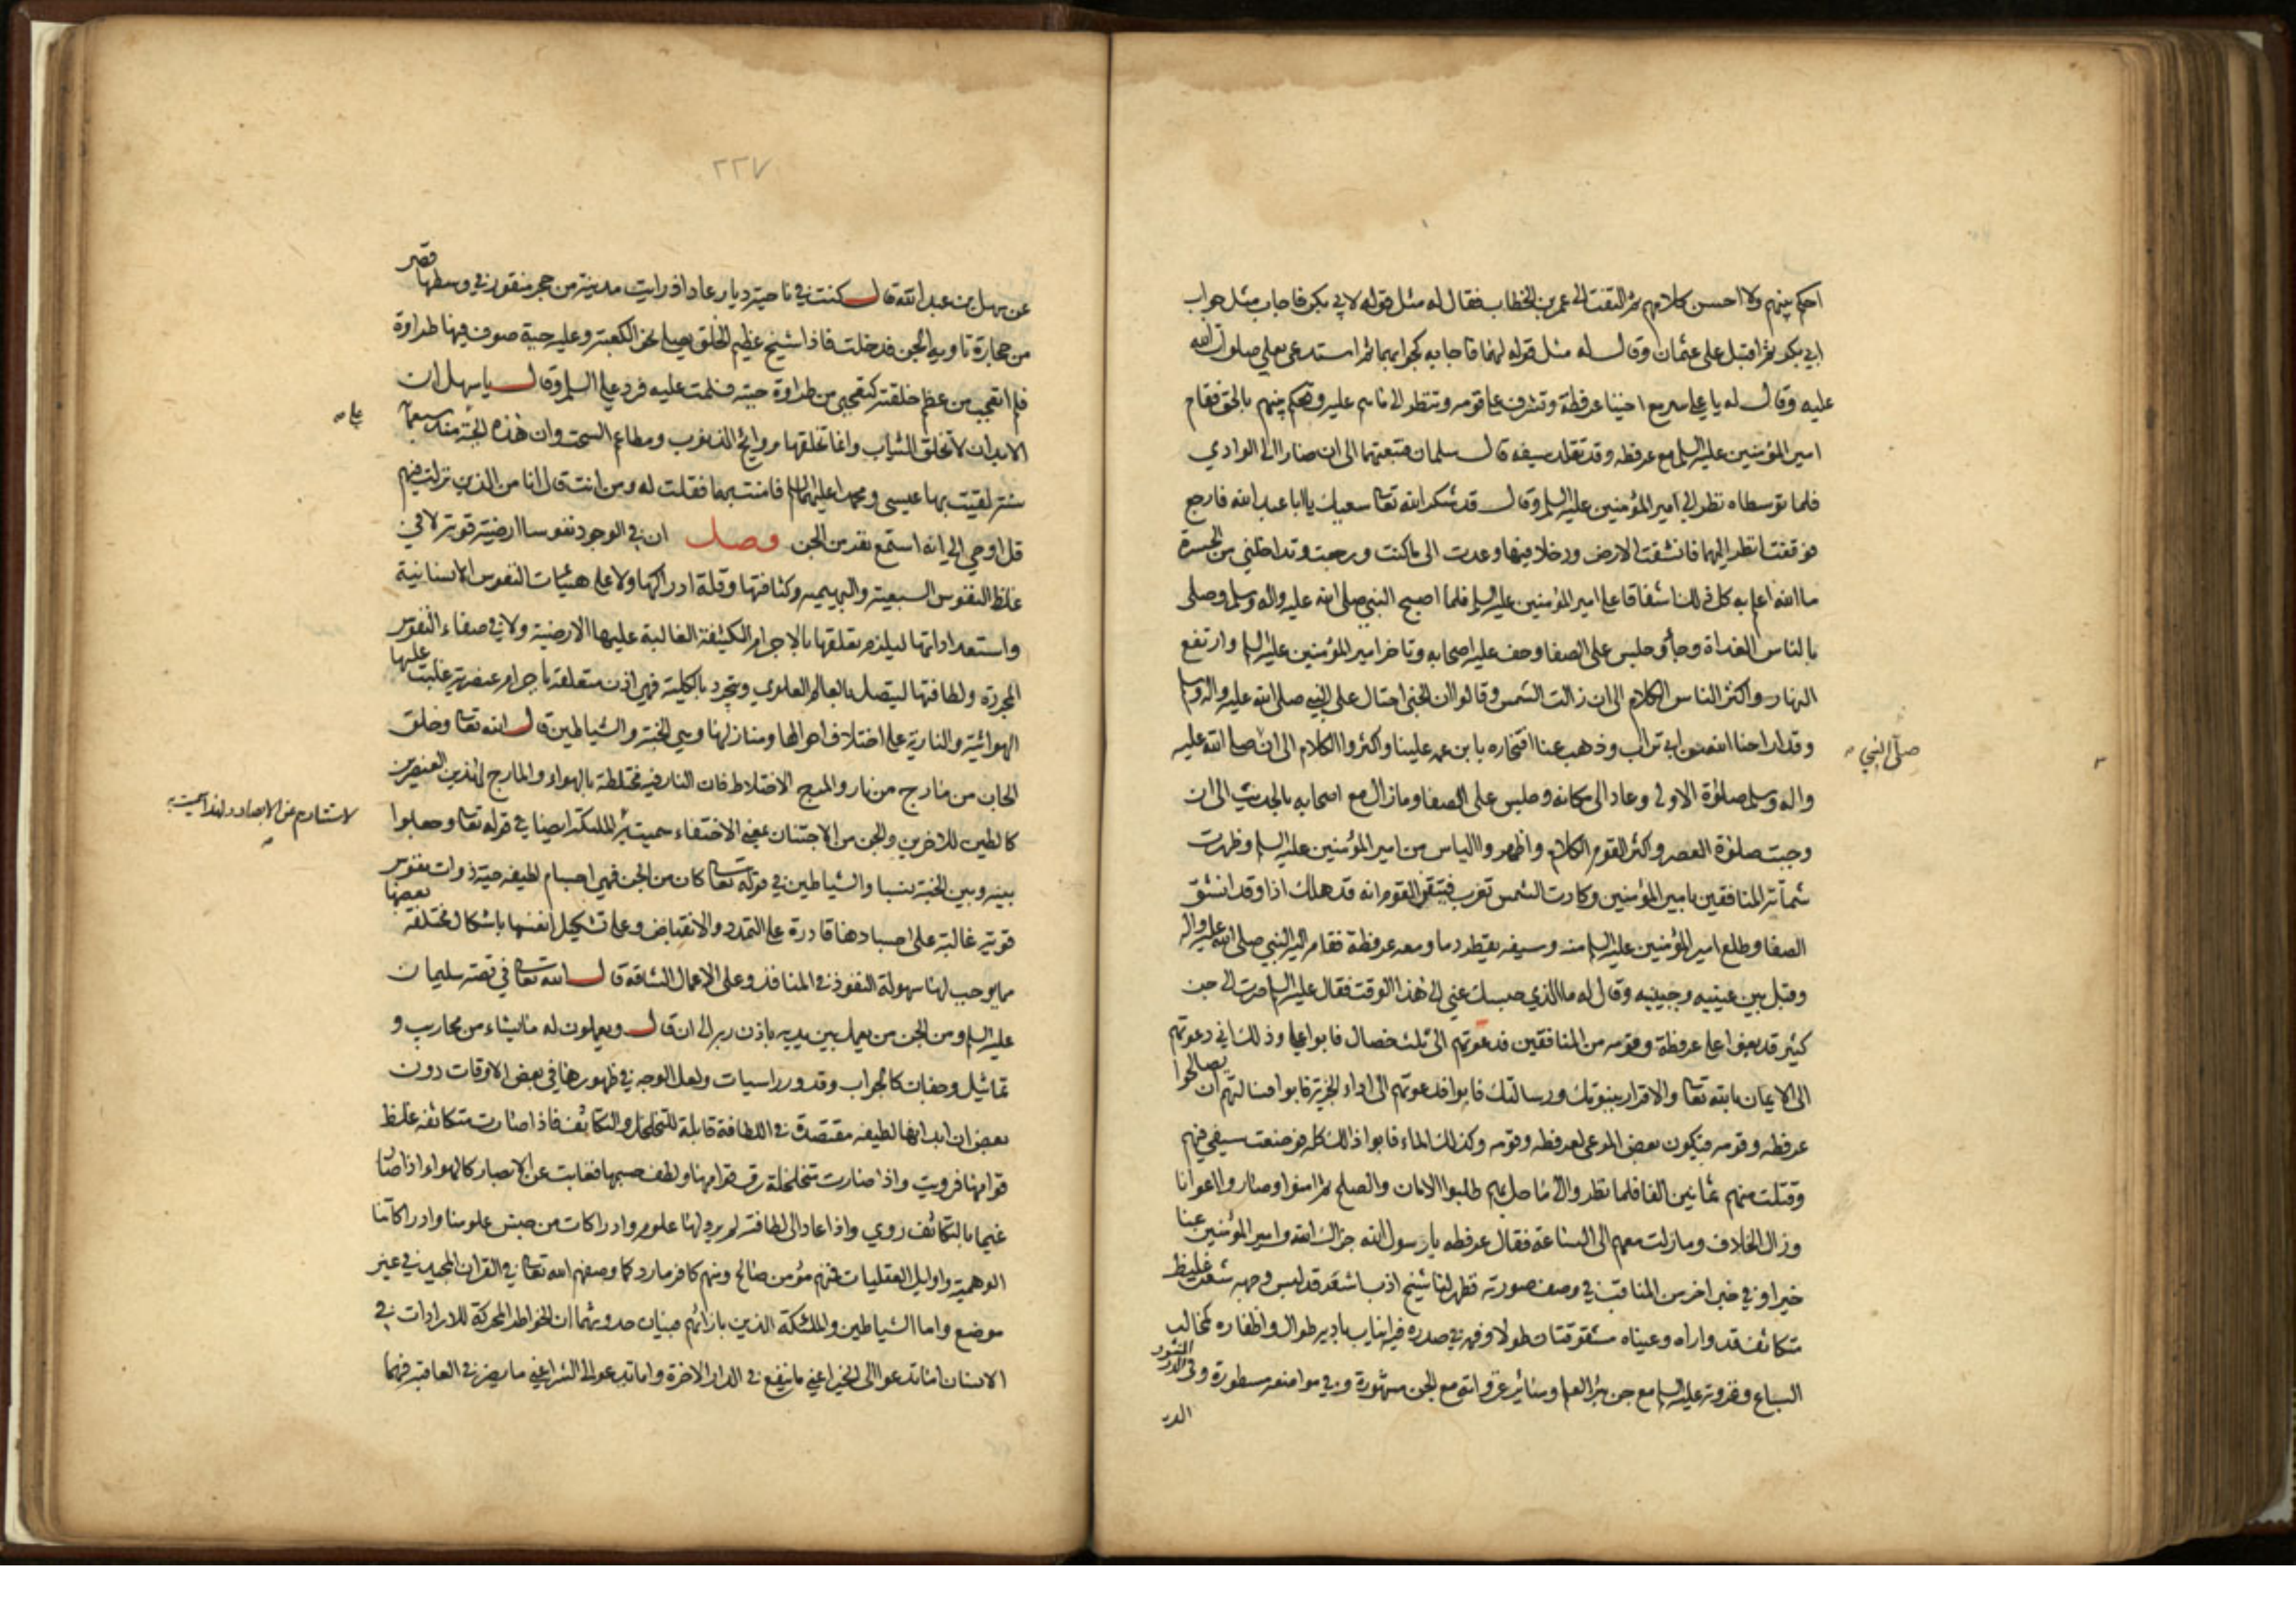 احكم بينهم ولا احسن كلامهم ثم التفت الى عمر بن الخطاب فقال له مثل قوله لابي بكر فاجاب مثل جواب
ابي بكر ثم اقبل على عثمان وقال له مثل قوله لهما فاجابه كجوابهما ثم استدعى بعلي صلوات الله
عليه وقال له يا علي سر مع اخينا عرفطة وتشرف على قومه وتنظر الى ما هم عليه وتحكم بينهم بالحق فقام
امير المؤمنين عليه السلم مع عرفطه وقد تقلد سيفه قال سلمان فتبعتهما الى ان صارا الى الوادي
فلما توسطاه نظر الي امير المؤمنين عليه السلم وقال قد شكر الله تعا سعيك يا ابا عبد الله فارجع
فوقفت انظر اليهما فانشقت الارض ودخلا فيها وعدت الى ما كنت ورجعت وتداخلني من الحسرة
ما الله اعلم به كل ذلك اشفاقا على امير المؤمنين عليه السلم فلما اصبح النبي صلى الله عليه واله وسلم وصلى
بالناس الغداة وجاء وجلس على الصفا وحف عليه اصحابه وتاخر امير المؤمنين عليه السلم وارتفع
النهار واكثر الناس الكلام الى ان زالت الشمس وقالوا ان الجني احتال على النبي صلى الله عليه واله وسلم
وقد اراحنا الله من ابي تراب وذهب عنا افتخاره بابن عمه علينا واكثروا الكلام الى ان صلى الله عليه
صلى النبي
واله وسلم صلوة الاولى وعاد الى مكانه وجلس على الصفا وما زال مع اصحابه بالحديث الى ان
وجبت صلوة العصر واكثر القوم الكلام واظهروا الياس من امير المؤمنين عليه السلم وظهرت
شماتة المنافقين بامير المؤمنين وكادت الشمس تغرب فتيقن القوم انه قد هلك اذا وقد انشق
الصفا وطلع امير المؤمنين عليه السلم منه وسيفه يقطر دما ومعه عرفطة فقام اليه النبي صلى الله عليه واله
وقبل بين عينيه وجبينيه وقال له ما الذي حبسك عني الى هذا الوقت فقال عليه السلم صرت الى جن
كثير قد بغوا على عرفطة وقومه من المنافقين فدعوتهم الى ثلث خصال فابوا علي وذلك اني دعوتهم
الى الايمان بالله تعا والاقرار بنبوتك ورسالتك فابوا فدعوتهم الى اداء الجزية فابوا فسالتهم ان يصالحوا
عرفطه وقومه فيكون بعض المرعى لعرفطه وقومه وكذلك الماء فابوا ذلك كله فوضعت سيفي فيهم
وقتلت منهم ثمانين الفا فلما نظروا الى ما حل بهم طلبوا الامان والصلح ثم امنوا وصاروا اعوانا
وزال الخلاف وما زلت معهم الى الساعة فقال عرفطه يا رسول الله جزاك الله وامير المؤمنين عنا
خيرا وفي خبر اخر من المناقب في وصف صورته فظهر لنا شيخ اذب اشعر قد لبس وجهه شعر غليظ
متكاثف قد واراه وعيناه مشقوقتان طولا وفمه في صدره فيه انياب بادية طوال واظفاره كمخالب
السباع وغزوته عليه السلم مع جن بئر العلم وسائر غزواته مع الجن مشهورة وفي مواضعه مسطورة وفي الدر المنثور
الدر
٢٢٧
عن سهل بن عبد الله قال كنت في ناحية ديار عاد اذ رايت مدينة من حجر منقور في وسطها قصر
من حجارة تاويه الجن فدخلت فاذا شيخ عظيم الخلق يصلي نحو الكعبة وعليه جبة صوف فيها طراوة
فلم اتعجب من عظم خلقته كتعجبي من طراوة جبته فسلمت عليه فرد علي السلم وقال يا سهل ان
الابدان لا تخلق الثياب وانما تخلقها روائح الذنوب ومطاعم السحت وان هذه الجبة منذ سبعمائة
على
سنة لقيت بها عيسى ومحمدا عليهما السلم فامنت بهما فقلت له ومن انت قال انا من الذين نزلت فيهم
قل اوحي الي انه استمع نفر من الجن فصل ان في الوجود نفوسا ارضية قوية لا في
غلظ النفوس السبعية والبهيمية وكثافتها وقلة ادراكها ولا على هيئات النفوس الانسانية
واستعداداتها ليلزم تعلقها بالاجرام الكثيفة الغالبة عليها الارضية ولا في صفاء النفوس
المجردة ولطافتها ليتصل بالعالم العلوي ويتجرد بالكلية فهي اذن متعلقة باجرام عنصرية غلبت عليها
الهوائية والنارية على اختلاف احوالها ومنازلها وهي الجنة والشياطين قال الله تعا وخلق
الجان من مارج من نار والمرج الاختلاط فان النار فيه مختلطة بالهواء والمارج لهذين العنصرين
كالطين للاخرين والجن من الاجتنان بمعنى الاختفاء سميت به الملئكة ايضا في قوله تعا وجعلوا
لاستتارهم عن الابصار ولهذا سميت به
بينه وبين الجنة نسبا والشياطين في قوله تعا كان من الجن فهي اجسام لطيفه حية ذوات نفوس
قوية غالبة على اجسادها قادرة على التمدد والانقباض وعلى تشكيل انفسها باشكال مختلفة بعضها
مما يوجب لها سهولة النفوذ في المنافذ وعلى الاعمال الشاقة قال الله تعا في قصة سليمان
عليه السلم ومن الجن من يعمل بين يديه باذن ربه الى ان قال ويعملون له ما يشاء من محاريب و
تماثيل وجفان كالجواب وقدور راسيات ولعل الوجه في ظهورها في بعض الاوقات دون
بعض ان ابدانها لطيفه مقتصدة في اللطافة قابلة للتخلخل والتكاثف فاذا صارت متكاثفه غلظ
قوامها فرويت واذا صارت متخلخلة رق قوامها ولطف جسمها فغابت عن الابصار كالهواء اذا صار
غيما بالتكاثف روي واذا عاد الى لطافته لم ير ولها علوم وادراكات من جنس علومنا وادراكاتنا
الوهمية واوايل العقليات فمنهم مؤمن صالح ومنهم كافر مارد كما وصفهم الله تعا في القران المجيد في غير
موضع واما الشياطين والملئكة الذين بازائهم فبيان حدوثهما ان الخواطر المحركة للارادات في
الانسان اما تدعو الى الخير اعني ما ينفع في الدار الاخرة واما تدعو الى الشر اعني ما يضر في العاقبة فهما